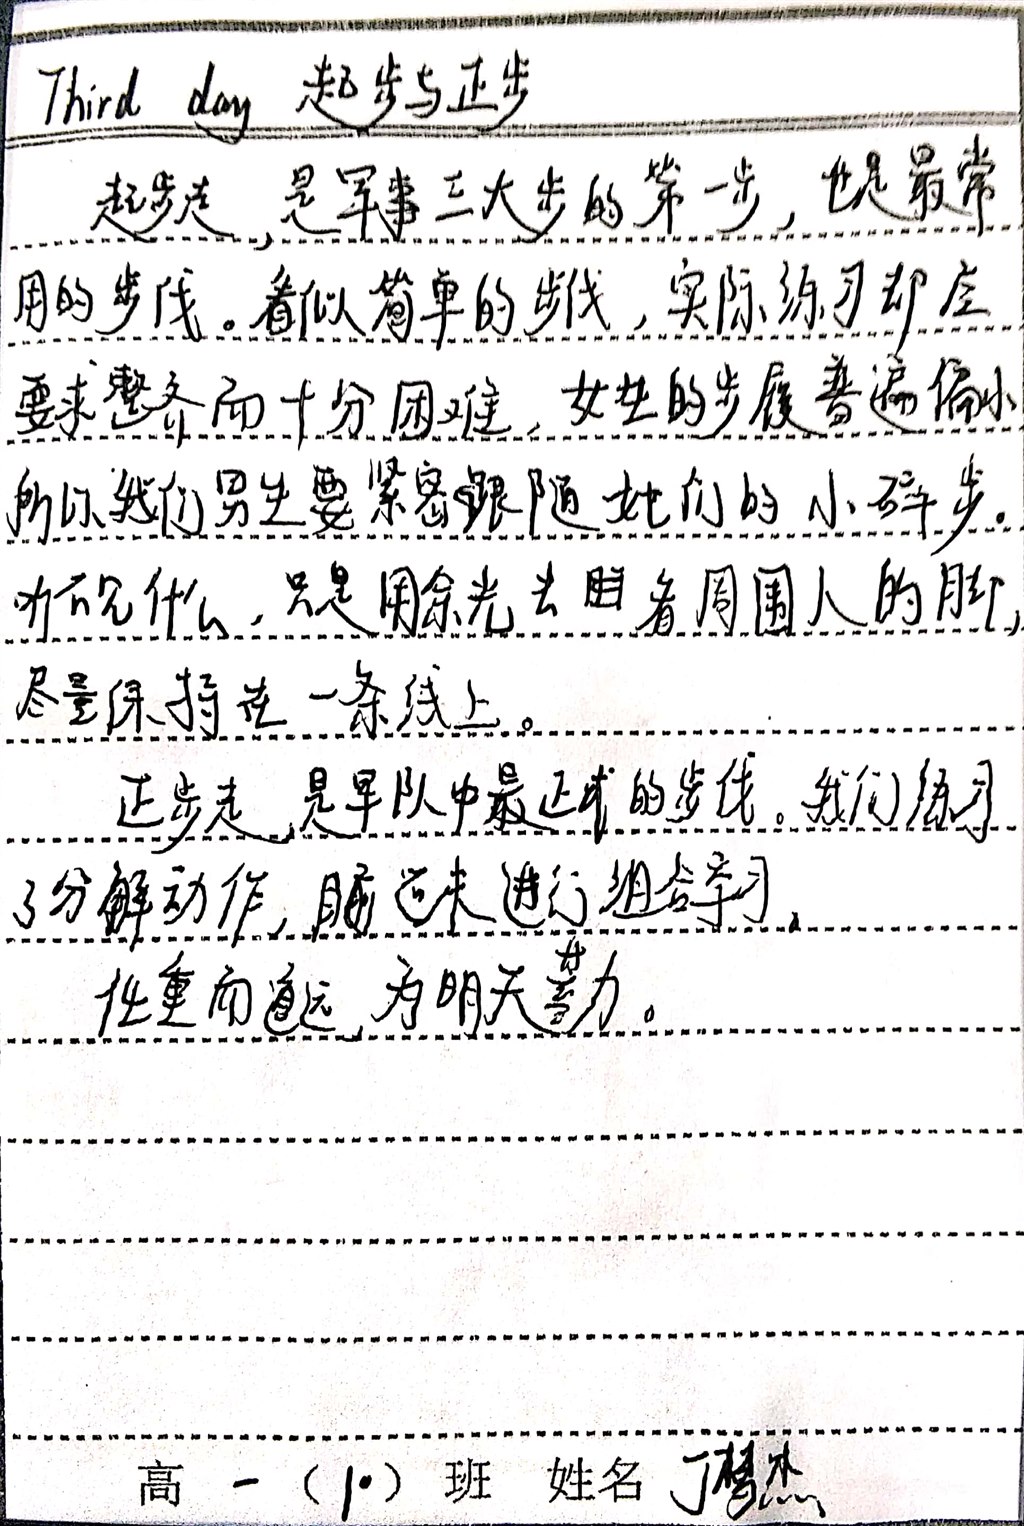 Third day 起步与正步
起步走,是军事三大步的第一步,也是最常
用的步伐。看似简单的步伐,实际练习却应
要求整齐而十分困难,女生的步履普遍偏小
所以我们男生要紧密跟随她们的小碎步。
什么,只是用余光去瞄着周围人的脚,
尽量保持在一条线上。
正步走,是军队中最正式的步伐。我们练习
了分解动作,随后未进行组合学习,
任重而道远,为明天蓄力。
高一(10)班 姓名 丁梦杰